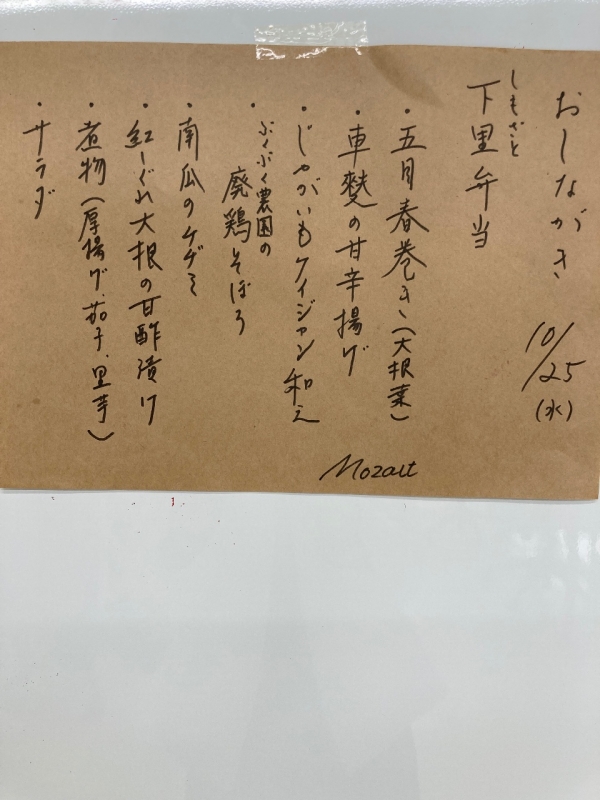 おしながき
10/25
(水)
しもざと
下里弁当
・五目春巻き(大根菜)
・車麩の甘辛揚げ
・じゃがいもケイジャン和え
・ぶくぶく農園の
廃鶏そぼろ
・南瓜のケヂミ
・紅しぐれ大根の甘酢漬け
・煮物(厚揚げ、茄子、里芋)
・サラダ
Mozart